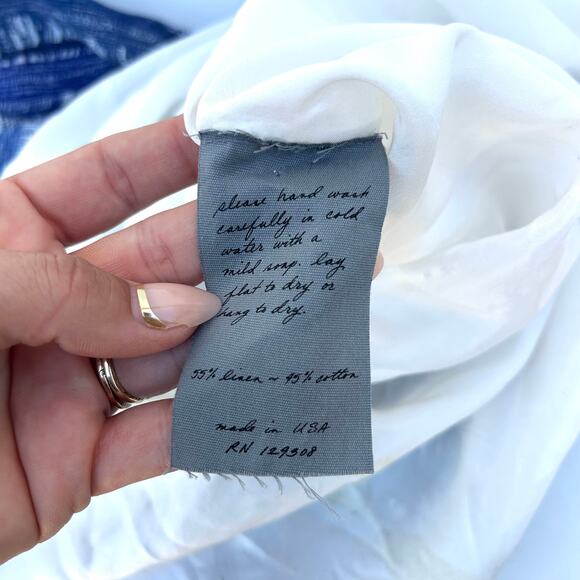 please hand wash
carefully in cold
water with a
mild soap. lay
flat to dry or
hang to dry.
55% linen ~ 45% cotton
made in USA
RN 129308